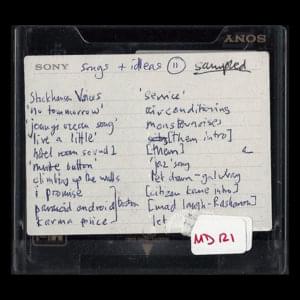 SONY
SONY songs + ideas 11 sampled
Stockhausen Voices
'no tommorrow'
'lounge ocean song'
'live a little'
hotel room sound 1
'mute button'
climbing up the walls
i promise
paranoid android
karma police
Boston
'service'
airconditioning
monsternoises
[them intro]
[them]
'jazz' song
let down - galway
[citizen kane intro]
[mad laugh - Rashamon]
let
MD121